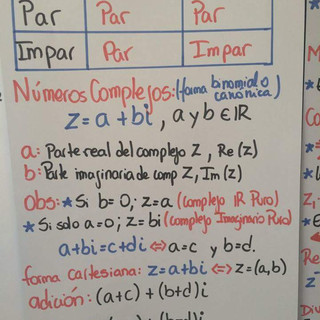 Par Par Par
Impar Par Impar
Números Complejos: (forma binomial o canonica)
z = a + bi , a y b ∈ IR
a: Parte real del complejo Z, Re(z)
b: Parte imaginaria de comp Z, Im(z)
Obs: * Si b = 0, : z = a (complejo IR Puro)
* Si solo a = 0; z = bi (complejo Imaginario Puro)
a + bi = c + di ⇔ a = c y b = d.
forma cartesiana: z = a + bi ⇔ z = (a, b)
adición: (a + c) + (b + d) i